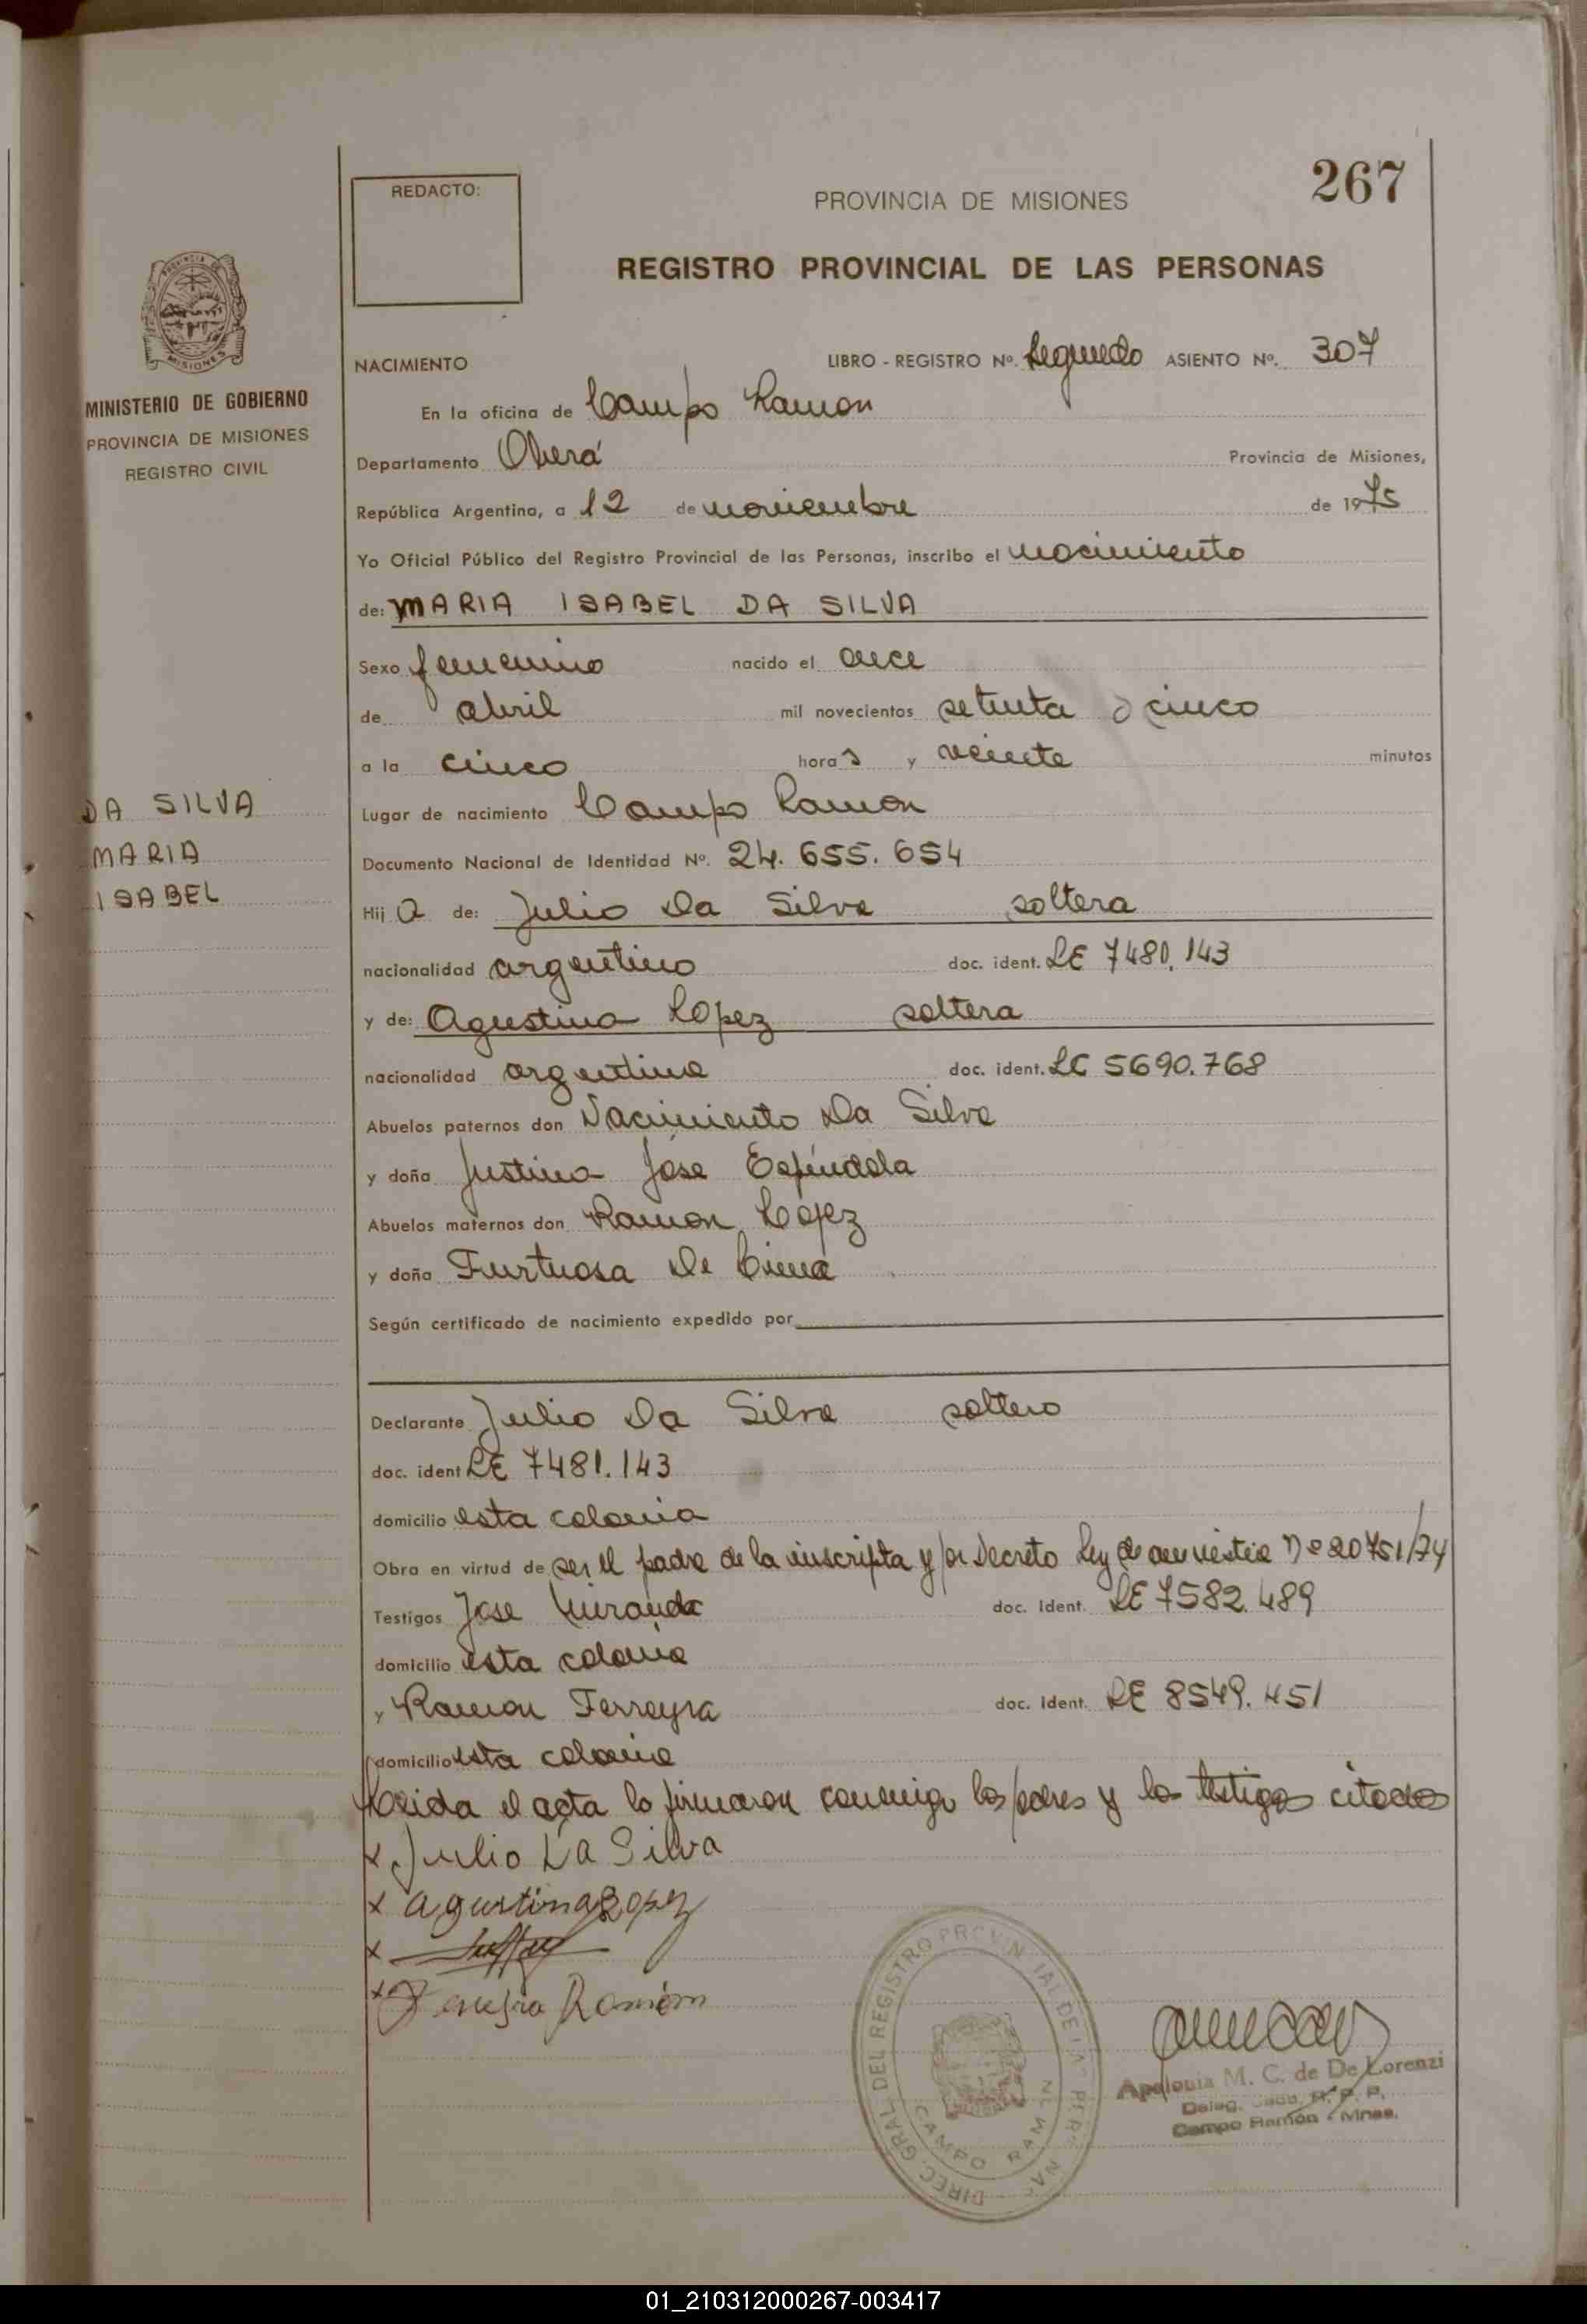 267
REDACTO:
PROVINCIA DE MISIONES
REGISTRO PROVINCIAL DE LAS PERSONAS
MINISTERIO DE GOBIERNO
PROVINCIA DE MISIONES
REGISTRO CIVIL
NACIMIENTO LIBRO - REGISTRO Nº. Segundo ASIENTO Nº. 307
En la oficina de Campo Ramon
Departamento Oberá Provincia de Misiones,
República Argentina, a 12 de noviembre de 1975
Yo Oficial Público del Registro Provincial de las Personas, inscribo el nacimiento
de: MARIA ISABEL DA SILVA
Sexo femenino nacido el once
de abril mil novecientos setenta y cinco
a la cinco horas y veinte minutos
DA SILVA
MARIA
ISABEL
Lugar de nacimiento Campo Ramon
Documento Nacional de Identidad Nº. 24.655.654
Hij a de: Julio Da Silva soltera
nacionalidad argentino doc. ident. LE 7480.143
y de: Agustina Lopez soltera
nacionalidad argentina doc. ident. LC 5690.768
Abuelos paternos don Nacimiento Da Silva
y doña Justina Jose Espindola
Abuelos maternos don Ramon Lopez
y doña Furtuosa De
Según certificado de nacimiento expedido por
Declarante Julio Da Silva soltero
doc. ident LE 7481.143
domicilio esta colonia
Obra en virtud de ser el padre de la inscripta y por Decreto Ley de amnistia Nº 20751/74
Testigos Jose Miranda doc. ident. LE 7582.489
domicilio esta colonia
y Ramon Ferreyra doc. ident. LE 8549.451
domicilio esta colonia
Leida el acta lo firmaron conmigo los padres y los testigos citados
x Julio Da Silva
x agustina Lopez
x
x Ferreyra Ramón
DIREC. GRAL DEL REGISTRO PROVINCIAL DE LAS PERSONAS
CAMPO RAMON
Apolonia M. C. de De Lorenzi
Campo Ramón - Mnes.
01_210312000267-003417